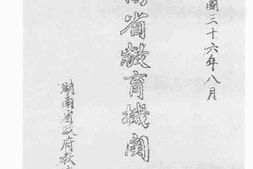 國三十六年八月
南省教育機関
湖南省政府教